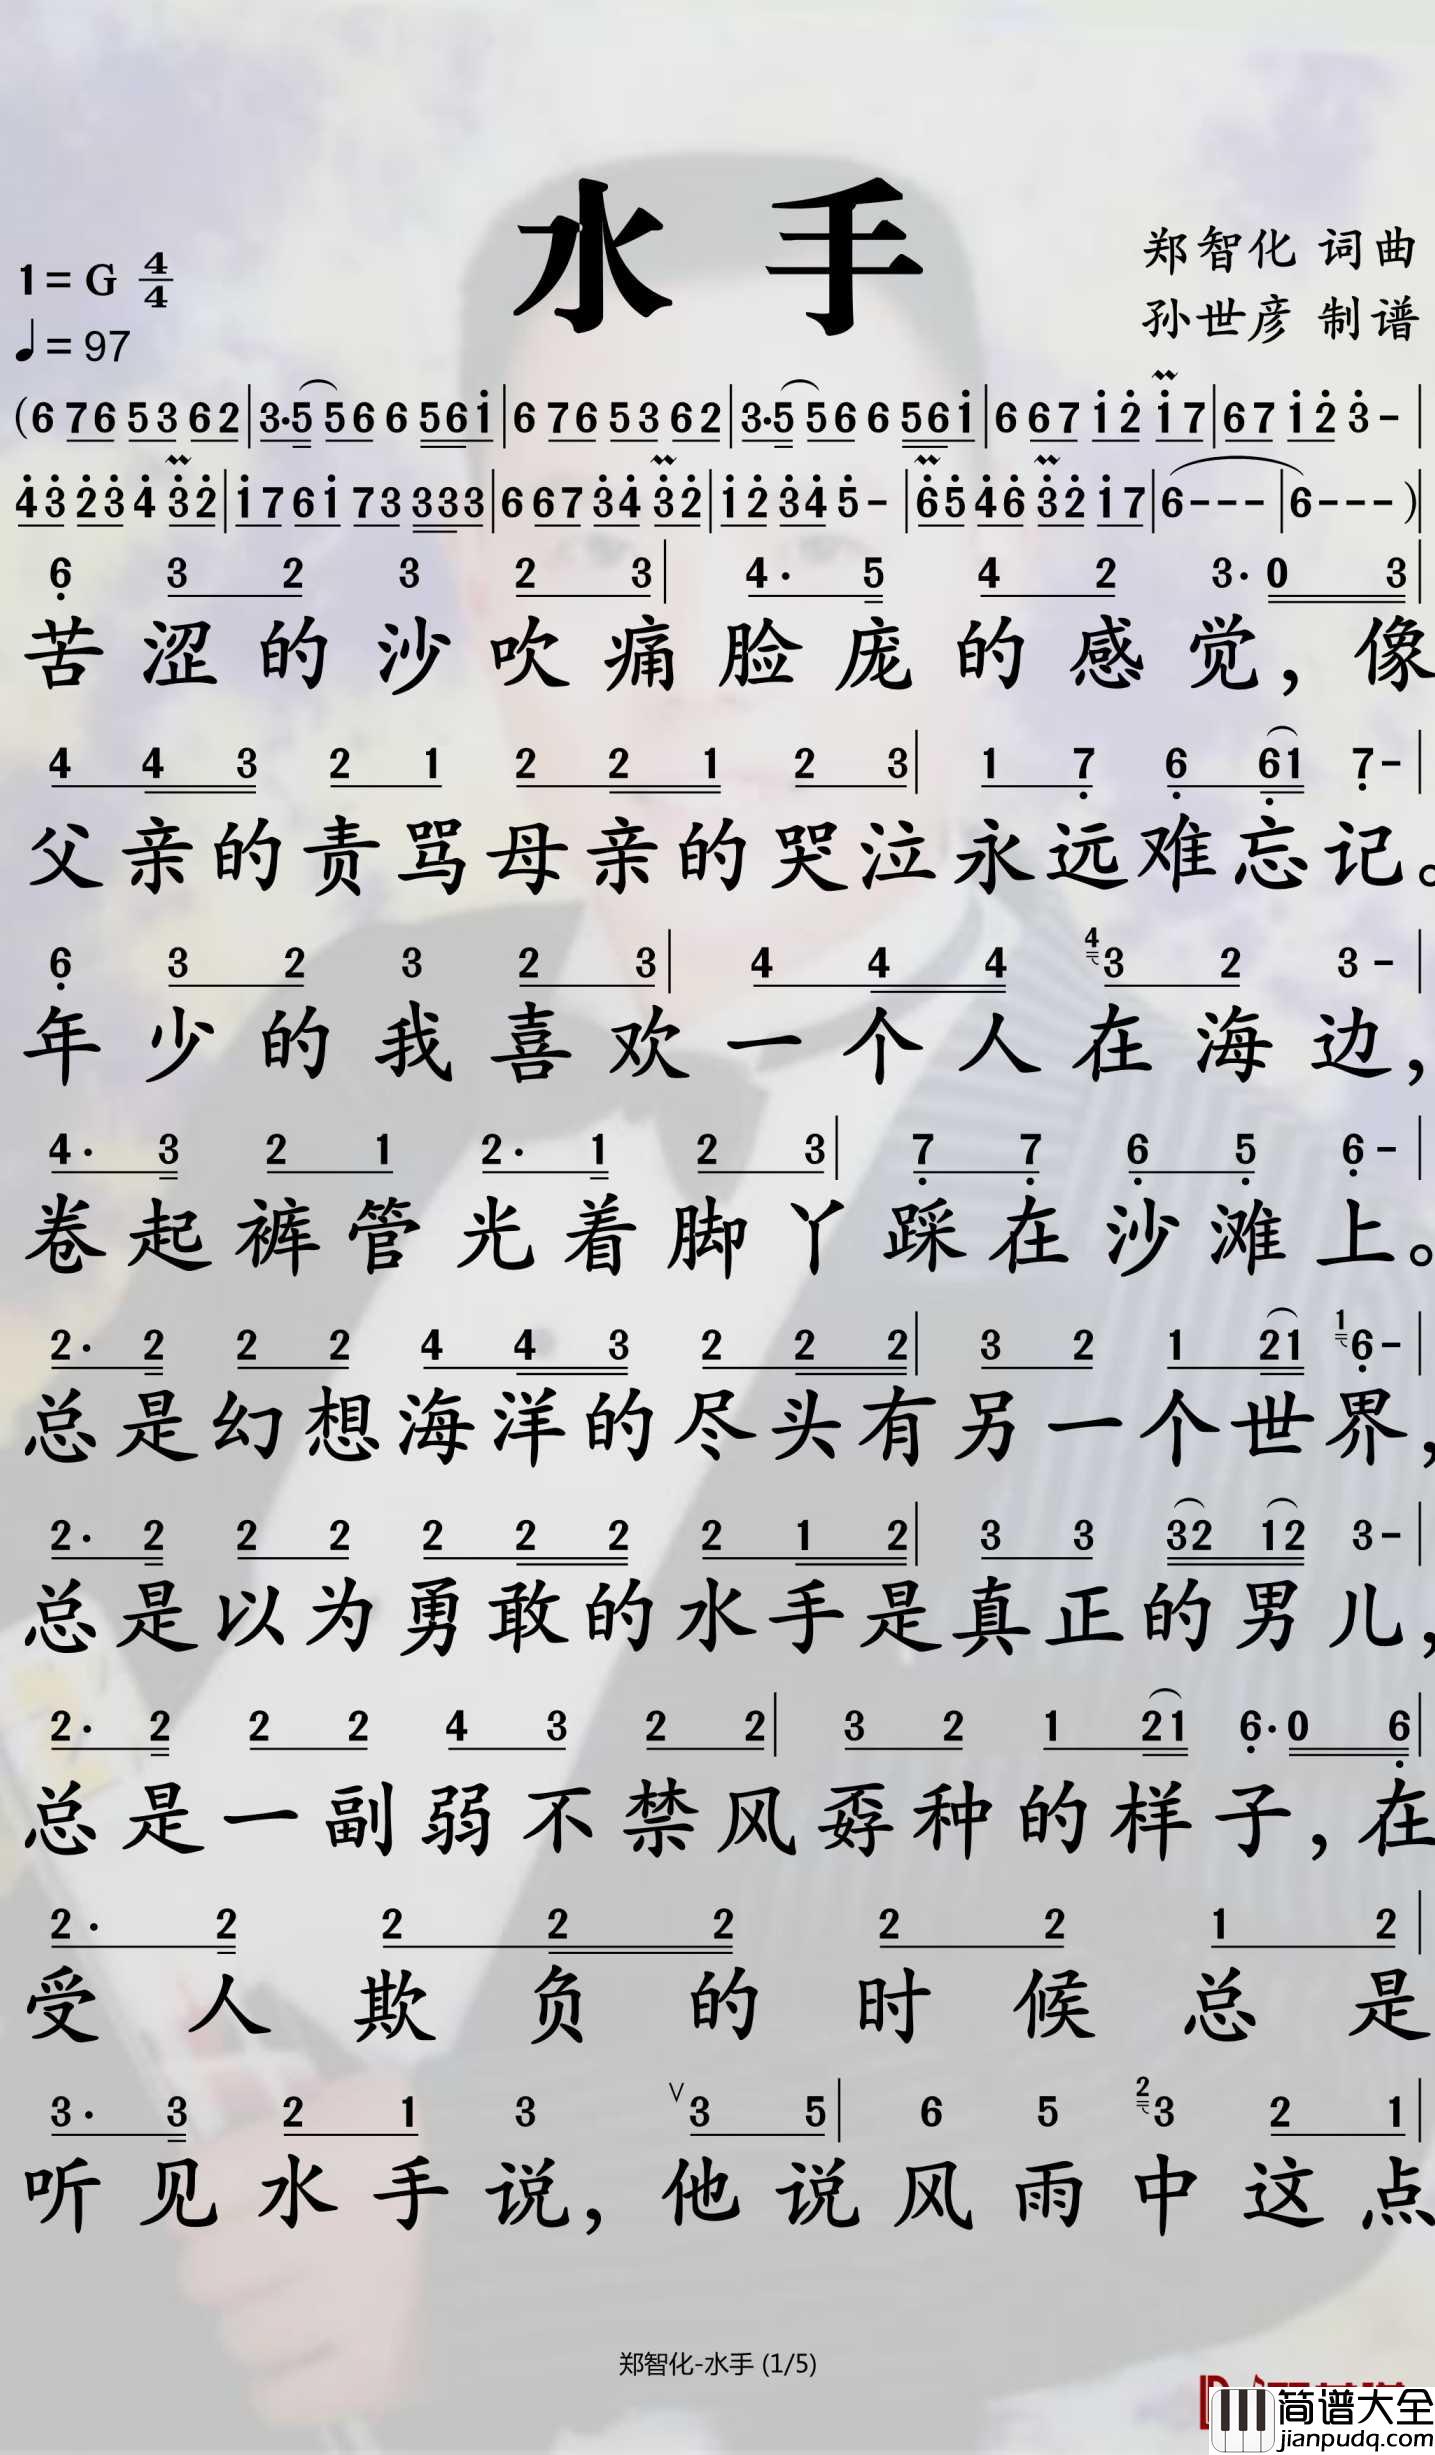 水手
1=G 4/4
♩=97
郑智化 词曲
孙世彦 制谱
(6 76 53 62|3·5 56 6 561|6 76 53 62|3·5 56 6 561|6 67 12 17|67 12 3-|
43 23 4 32|17 61 73 333|6 67 34 32|12 34 5-|65 46 32 17|6---|6---)|
6 3 2 3 2 3|4· 5 4 2 3·0 3|
苦涩的沙吹痛脸庞的感觉，像
4 4 3 2 1 2 2 1 2 3|1 7 6 61 7-|
父亲的责骂母亲的哭泣永远难忘记。
6 3 2 3 2 3|4 4 4 4 3 2 3-|
年少的我喜欢一个人在海边，
4· 3 2 1 2· 1 2 3|7 7 6 5 6-|
卷起裤管光着脚丫踩在沙滩上。
2· 2 2 2 4 4 3 2 2 2|3 2 1 21 1 6-|
总是幻想海洋的尽头有另一个世界，
2· 2 2 2 2 2 2 2 1 2|3 3 32 12 3-|
总是以为勇敢的水手是真正的男儿，
2· 2 2 2 4 3 2 2|3 2 1 21 6·0 6|
总是一副弱不禁风孬种的样子，在
2· 2 2 2 2 2 2 1 2|
受人欺负的时候总是
3· 3 2 1 3 V 3 5|6 5 2 3 2 1|
听见水手说，他说风雨中这点
郑智化-水手 (1/5)
简谱大全
jianpudq.com